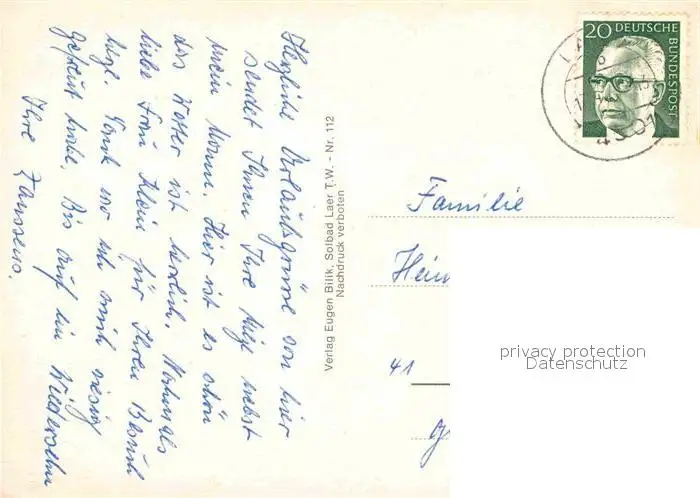 Herzliche Urlaubsgrüsse von hier
sendet Ihnen Ihre nebst
mein Mann. Hier ist es schön
das Wetter ist herrlich. Nochmals
liebe Frau Klein für Ihren Besuch
worüber ich mich riesig
gefreut habe. Bis auf ein Wiedersehn
Ihre Janssens.
Verlag Eugen Bilik, Solbad Laer T.W. - Nr. 112
Nachdruck verboten
20 DEUTSCHE
BUNDESPOST
4501
Familie
Hein
41
privacy protection
Datenschutz